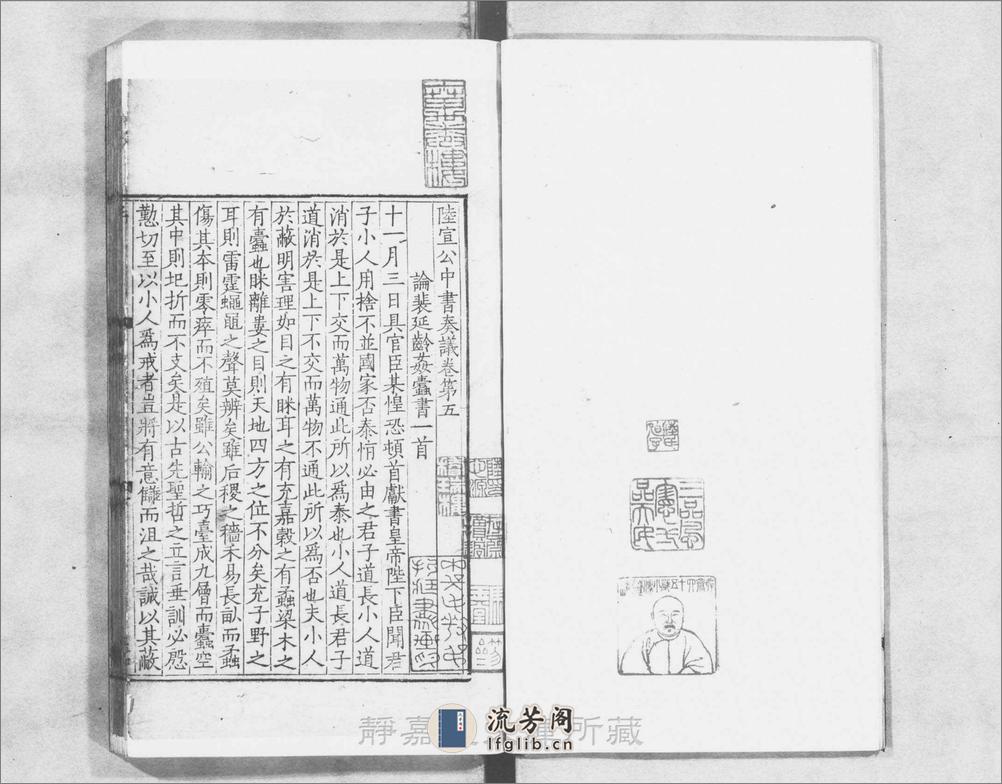 陸宣公中書奏議卷第五
論裴延齡姦蠹書一首
十一月三日具官臣某惶恐頓首獻書皇帝陛下臣聞君
子小人用捨不並國家否泰恒必由之君子道長小人道
消於是上下交而萬物通此所以爲泰也小人道長君子
道消於是上下不交而萬物不通此所以爲否也夫小人
於蔽明害理如目之有眯耳之有充嘉穀之有蟊梁木之
有蠹也眯離婁之目則天地四方之位不分矣充子野之
耳則雷霆蠅黽之聲莫辨矣雖后稷之穡禾易長畝而蟊
傷其本則零瘁而不殖矣雖公輸之巧臺成九層而蠹空
其中則圮折而不支矣是以古先聖哲之立言垂訓必慇
懃切至以小人爲戒者豈將有意讎而沮之哉誠以其蔽
靜嘉 所藏
流芳阁
lfglib.cn